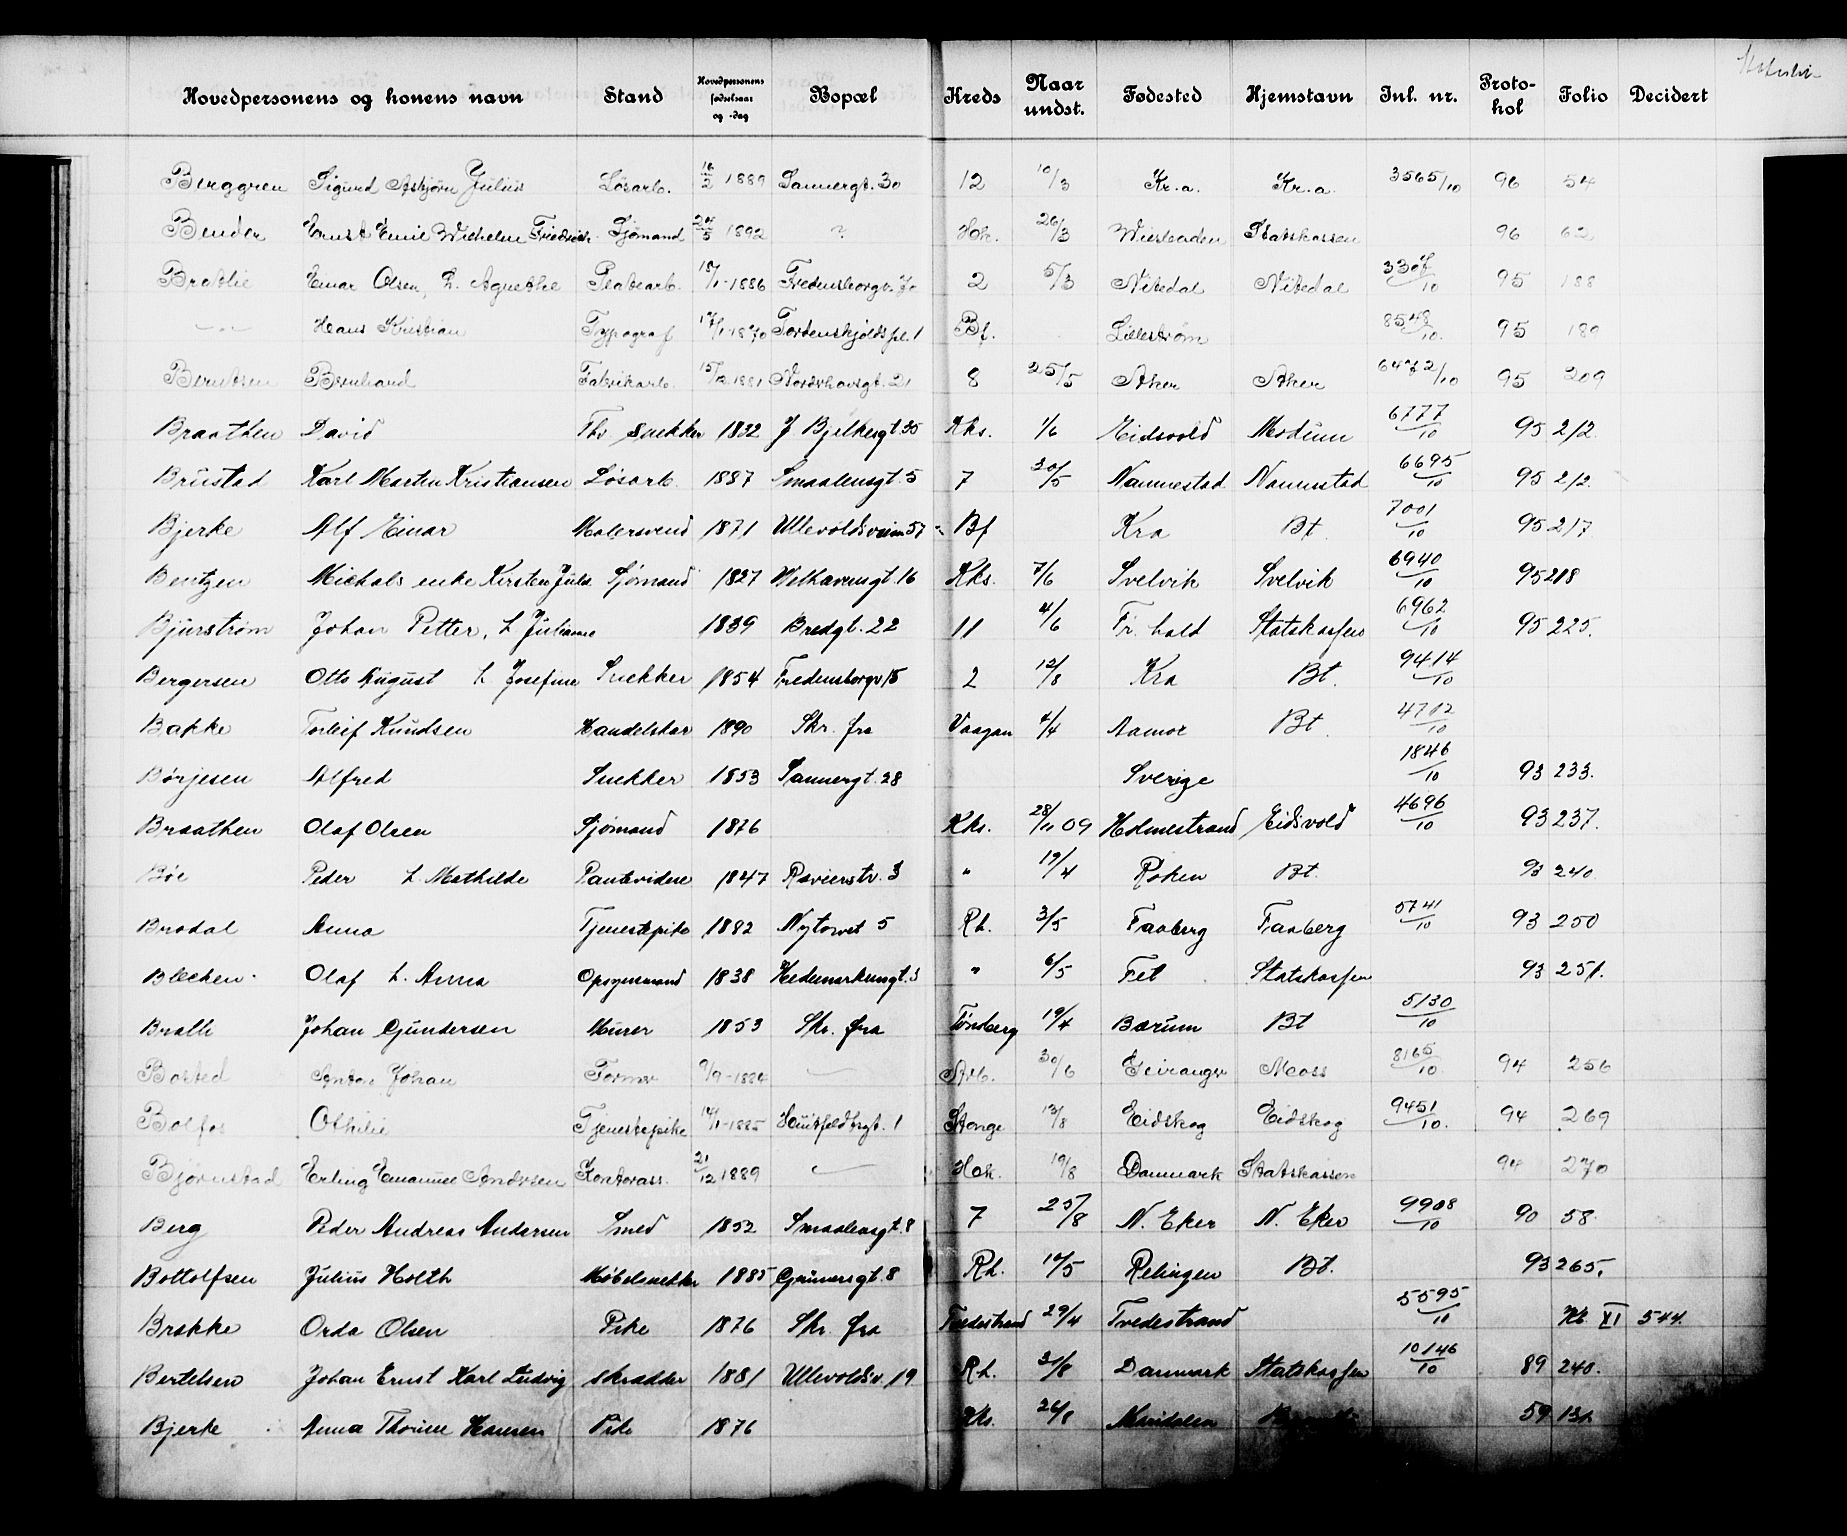 Hovedpersonens og konens navn Stand Hovedpersonens fødselsaar og -dag Bopæl Kreds Naar undst. Fødested Hjemstavn Inl. nr. Protokol Folio Decidert
Berggren Sigurd Asbjørn Julius Løsarb. 16/2 1889 Sannergt. 30 12 10/3 Kr.a. Kr.a. 3565/10 96 54
Bender Ernst Emil Wilhelm Friedrich Sjømand 24/5 1892 ? Hok. 26/3 Wiesbaden Statskassen 96 62
Bratlie Einar Olsen, h. Agnethe Pladearb. 1886 Fredensborgv. 2 5/3 Nitedal Nitedal 3307/10 95 188
—"— Hans Kristian Typograf 17/1-1870 Tordenskjoldspl. 1 Bf. Lillestrøm 8548/10. 95 189
Berntsen Bernhard Fabrikarb. 15/12 1881 Nordkapsgt. 21 8 25/5 Aker Aker 6472/10 95 209
Braathen David Thv Snekker 1832 J Bjelkesgt. 35 Kks. 1/6 Eidsvold Modum 6777/10 95 212.
Brustad Karl Martin Kristiansen Løsarb. 1887 Smaalensgt. 5 7 30/5 Nannestad Nannestad 6695/10 95 212.
Bjerke Alf Einar Malersvend 1871 Ullevoldsveien 57 Bf Kra Bt 7001/10 95 217
Bentzen Michals enke Kirsten Jula Sjømand 1827 Welhavensgt. 16 Kks. 7/6 Svelvik Svelvik 6940/10 95 218
Bjurstrøm Johan Petter, h Julianne 1839 Bredgt. 22 11 4/6 Fr. hald Statskassen 6962/10 95 225.
Bergersen Otto August h Josefine Snekker 1854 Fredensborgv 15 2 12/8 Kra Bt. 9414/10
Bakke Torleif Knudsen Handelskar 1890 Skr. fra Vaagan 2/4 Aamot Bt. 4702/10
Børjesen Alfred Snekker 1853 Sannergt. 28 Sverige 1846/10 93 233.
Braathen Olaf Olsen Sjømand 1876 Kks. 28/11 09 Holmestrand Eidsvold 4696/10 93 237.
Bøe Peder h. Mathilde Pantevidere 1847 Ravierstr. 3 " 19/4 Røken Bt. 93 240
Brodal Anna Tjenestepike 1882 Nytorvet 5 Rh. 3/5 Faaberg Faaberg 5741/10 93 250
Blecken Olaf h. Anna Opsynsmand 1838 Hedemarkensgt. 3 " 6/5 Fet Statskassen 93 251.
Bratli Johan Gundersen Murer 1853 Skr. fra Tønsberg 19/4 Bærum Bt 5130/10
Bosted Anton Johan Former 9/9-1884 — 30/6 Moss 8165/10. 94 256
Bolfos Othilie Tjenestepike 14/1-1885 Huitfeldtsgt. 1 Stange 13/8 Eidskog Eidskog 9451/10. 94 269
Bjørnstad Erling Emanuel Andersen Kontorass. 21/12 1889 — Hok. 19/8 Danmark Statskassen 94 270
Berg Peder Andreas Andersen Smed 1852 Smaalensgt. 8 7 25/8 N. Eker N. Eker 9908/10 90 58
Bottolfsen Julius Holth Møbelsnekker 1885 Grünersgt. 8 Rh. 10/5 Relingen Bt. 93 265.
Brække Orda Olsen Pike 1876 Skr. fra Tvedestrand 29/4 Tvedestrand 5595/10 XI 544.
Bertelsen Johan Ernst Karl Ludvig Skrædder 1881 Ullevoldsv. 19 Rh. 31/8 Danmark Statskassen 10146/10 89 240.
Bjerke Anna Thorine Hansen Pike 1876 Kks. 26/8 Maridalen 59